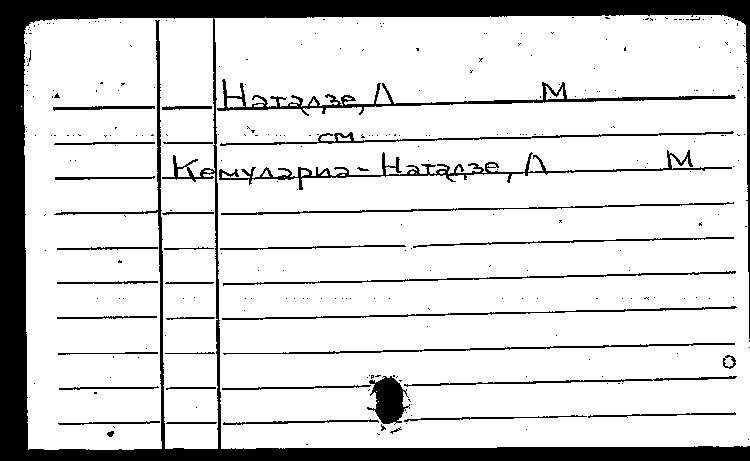 Натадзе, Л М
см.
Кемулариа - Натадзе, Л М